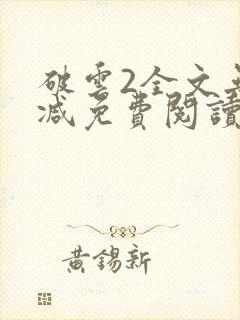 破雲2全文無
減免費閱讀
黃錫新